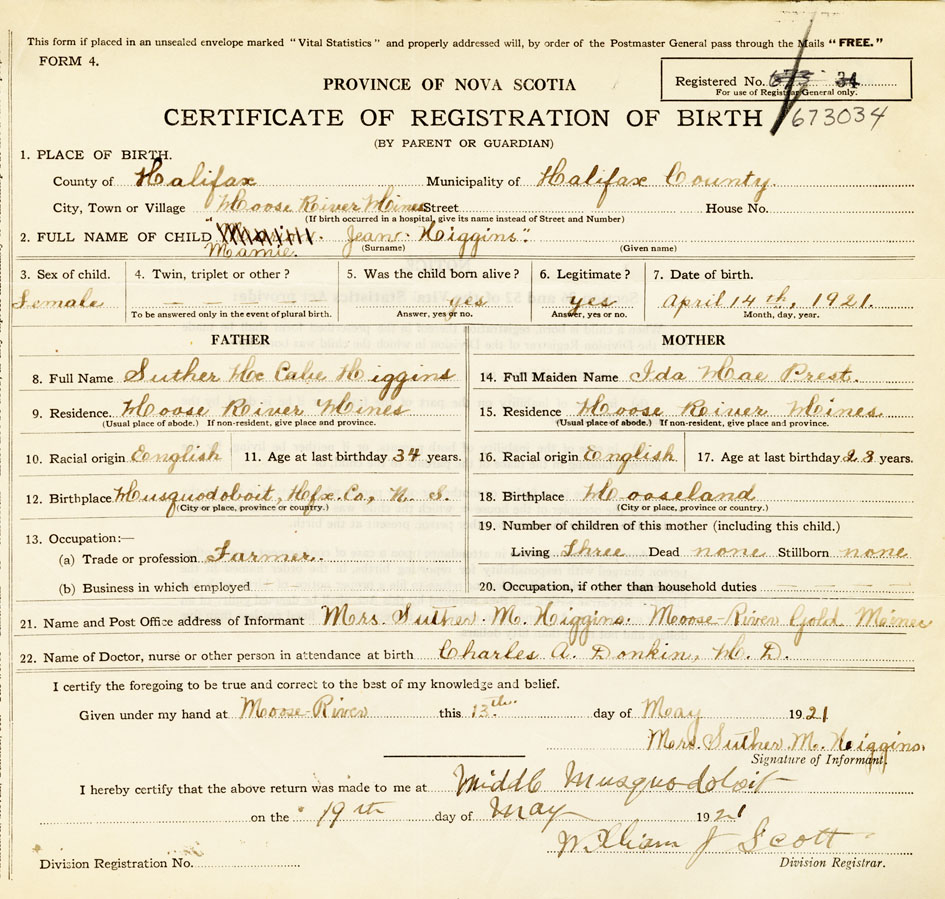 This form if placed in an unsealed envelope marked "Vital Statistics" and properly addressed will, by order of the Postmaster General pass through the Mails "FREE."
FORM 4.
PROVINCE OF NOVA SCOTIA
Registered No. 34
For use of Registrar General only.
CERTIFICATE OF REGISTRATION OF BIRTH 673034
(BY PARENT OR GUARDIAN)
1. PLACE OF BIRTH.
County of Halifax Municipality of Halifax County.
City, Town or Village Moose River Mines Street House No.
(If birth occurred in a hospital, give its name instead of Street and Number)
2. FULL NAME OF CHILD Jean Higgins".
Mamie. (Surname) (Given name)
3. Sex of child. 4. Twin, triplet or other? 5. Was the child born alive? 6. Legitimate? 7. Date of birth.
Female — — — — — yes yes April 14th, 1921.
To be answered only in the event of plural birth. Answer, yes or no. Answer, yes or no. Month, day, year.
FATHER MOTHER
8. Full Name Suther McCabe Higgins 14. Full Maiden Name Ida Mae Prest.
9. Residence Moose River Mines 15. Residence Moose River Mines
(Usual place of abode.) If non-resident, give place and province. (Usual place of abode.) If non-resident, give place and province.
10. Racial origin English 11. Age at last birthday 34 years. 16. Racial origin English 17. Age at last birthday 23 years.
12. Birthplace Musquodoboit, Hfx. Co., N. S. 18. Birthplace Mooseland
(City or place, province or country.) (City or place, province or country.)
13. Occupation:— 19. Number of children of this mother (including this child.)
(a) Trade or profession Farmer. Living Three Dead none Stillborn none
(b) Business in which employed 20. Occupation, if other than household duties
21. Name and Post Office address of Informant Mrs. Suther M. Higgins. Moose River Gold Mines
22. Name of Doctor, nurse or other person in attendance at birth Charles A. Donkin, M. D.
I certify the foregoing to be true and correct to the best of my knowledge and belief.
Given under my hand at Moose River this 13th day of May 1921
Mrs. Suther M. Higgins.
Signature of Informant.
I hereby certify that the above return was made to me at Middle Musquodoboit
on the 19th day of May 1921
William J Scott
Division Registration No. Division Registrar.